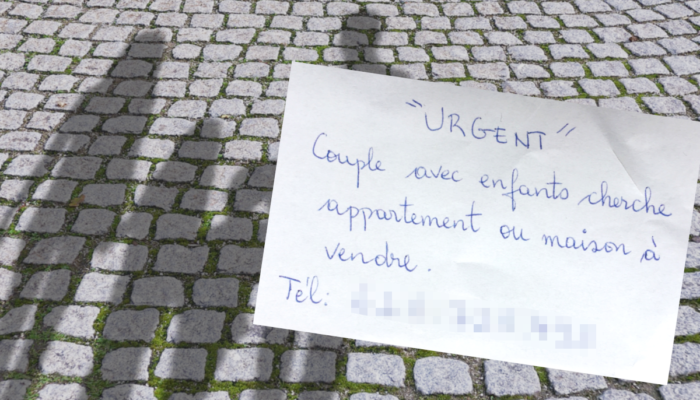 "URGENT"
Couple avec enfants cherche
appartement ou maison à
vendre.
Tél: